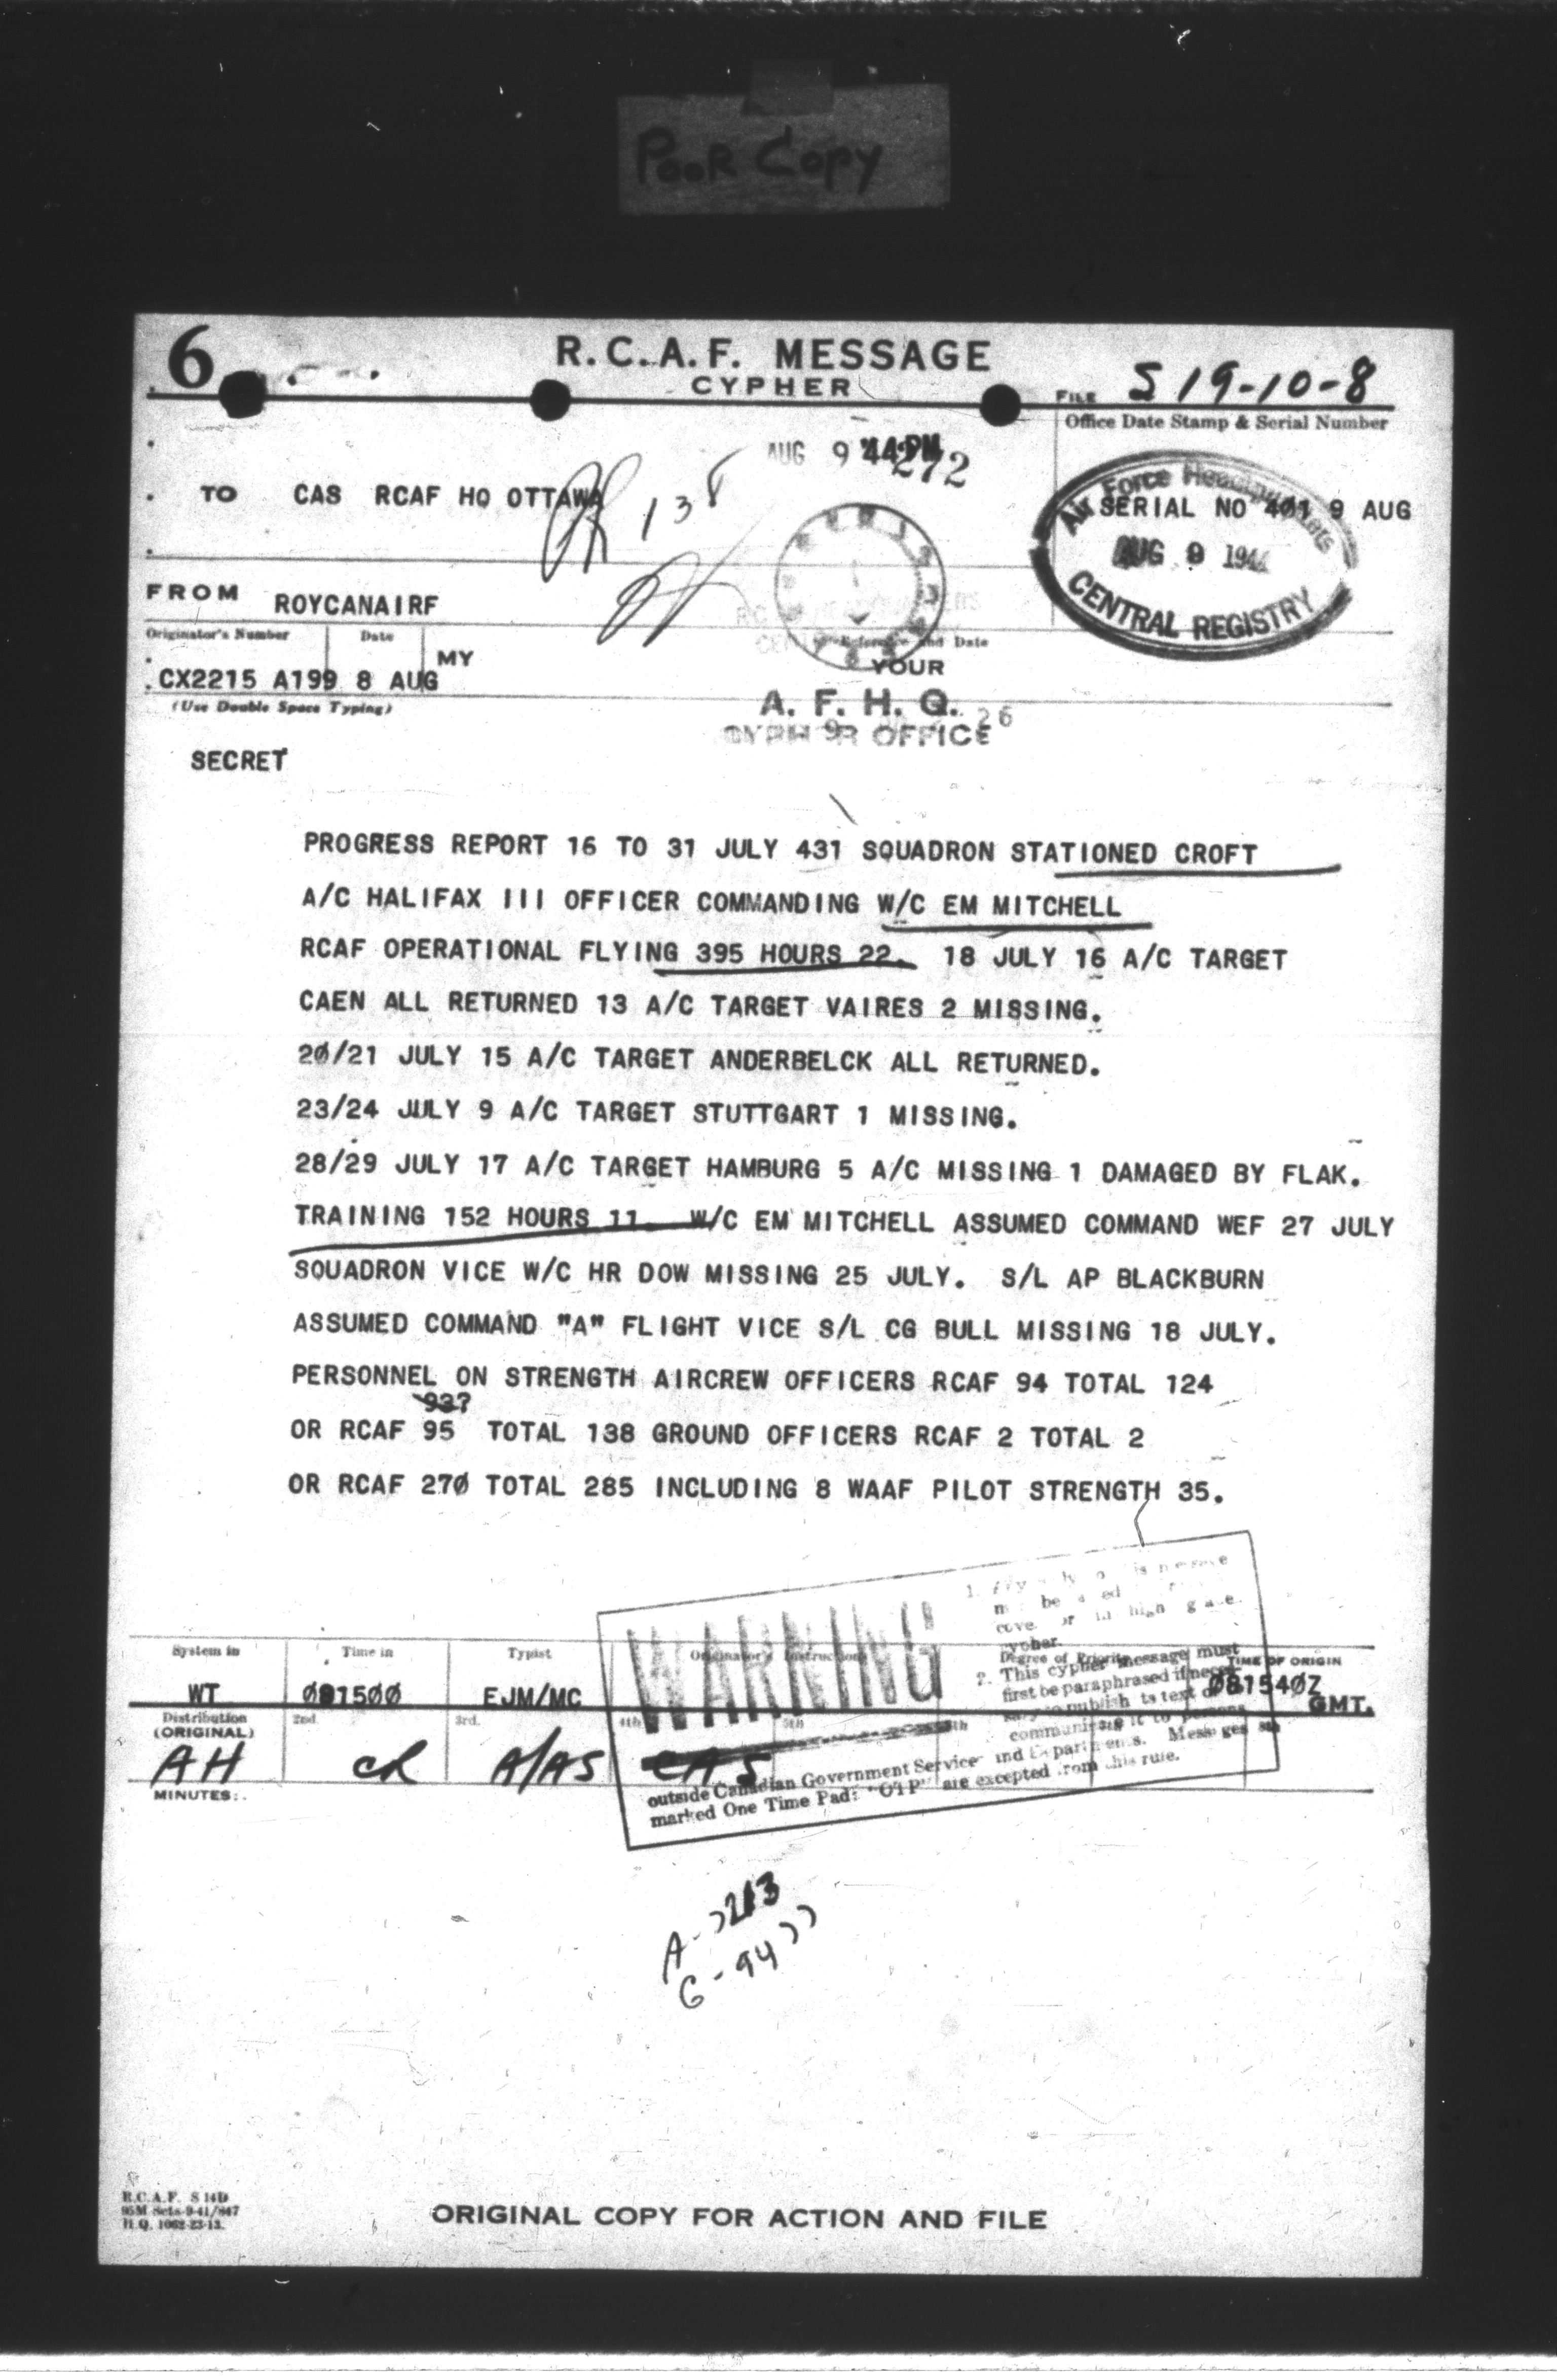 Poor Copy
6
R.C.A.F. MESSAGE
CYPHER
FILE S 19-10-8
Office Date Stamp & Serial Number
AUG 9 '44 PM
272
138
TO CAS RCAF HQ OTTAWA
Air Force Headquarters
SERIAL NO 401 9 AUG
AUG 9 1944
CENTRAL REGISTRY
FROM ROYCANAIRF
Originator's Number Date
Reference and Date
MY
YOUR
CX2215 A199 8 AUG
(Use Double Space Typing)
A. F. H. Q.
26
CYPHER OFFICE
SECRET
PROGRESS REPORT 16 TO 31 JULY 431 SQUADRON STATIONED CROFT
A/C HALIFAX III OFFICER COMMANDING W/C EM MITCHELL
RCAF OPERATIONAL FLYING 395 HOURS 22. 18 JULY 16 A/C TARGET
CAEN ALL RETURNED 13 A/C TARGET VAIRES 2 MISSING.
20/21 JULY 15 A/C TARGET ANDERBELCK ALL RETURNED.
23/24 JULY 9 A/C TARGET STUTTGART 1 MISSING.
28/29 JULY 17 A/C TARGET HAMBURG 5 A/C MISSING 1 DAMAGED BY FLAK.
TRAINING 152 HOURS 11. W/C EM MITCHELL ASSUMED COMMAND WEF 27 JULY
SQUADRON VICE W/C HR DOW MISSING 25 JULY. S/L AP BLACKBURN
ASSUMED COMMAND "A" FLIGHT VICE S/L CG BULL MISSING 18 JULY.
PERSONNEL ON STRENGTH AIRCREW OFFICERS RCAF 94 TOTAL 124
93?
OR RCAF 95 TOTAL 138 GROUND OFFICERS RCAF 2 TOTAL 2
OR RCAF 270 TOTAL 285 INCLUDING 8 WAAF PILOT STRENGTH 35.
WARNING
cypher.
2. This cypher message must
first be paraphrased if
to publish its text or
communicate it to persons
outside Canadian Government Service and Departments. Messages
marked One Time Pad: "OTP" are excepted from this rule.
System in Time in Typist Originator's Instructions Degree of Priority TIME OF ORIGIN
WT 091500 EJM/MC 081540Z GMT.
Distribution 2nd. 3rd. 4th 5th 6th
(ORIGINAL)
AH CR A/AS CAS
MINUTES:
A-7213
G-9477
R.C.A.F. S 14D
95M Sets-9-41/847
H.Q. 1062-23-13.
ORIGINAL COPY FOR ACTION AND FILE